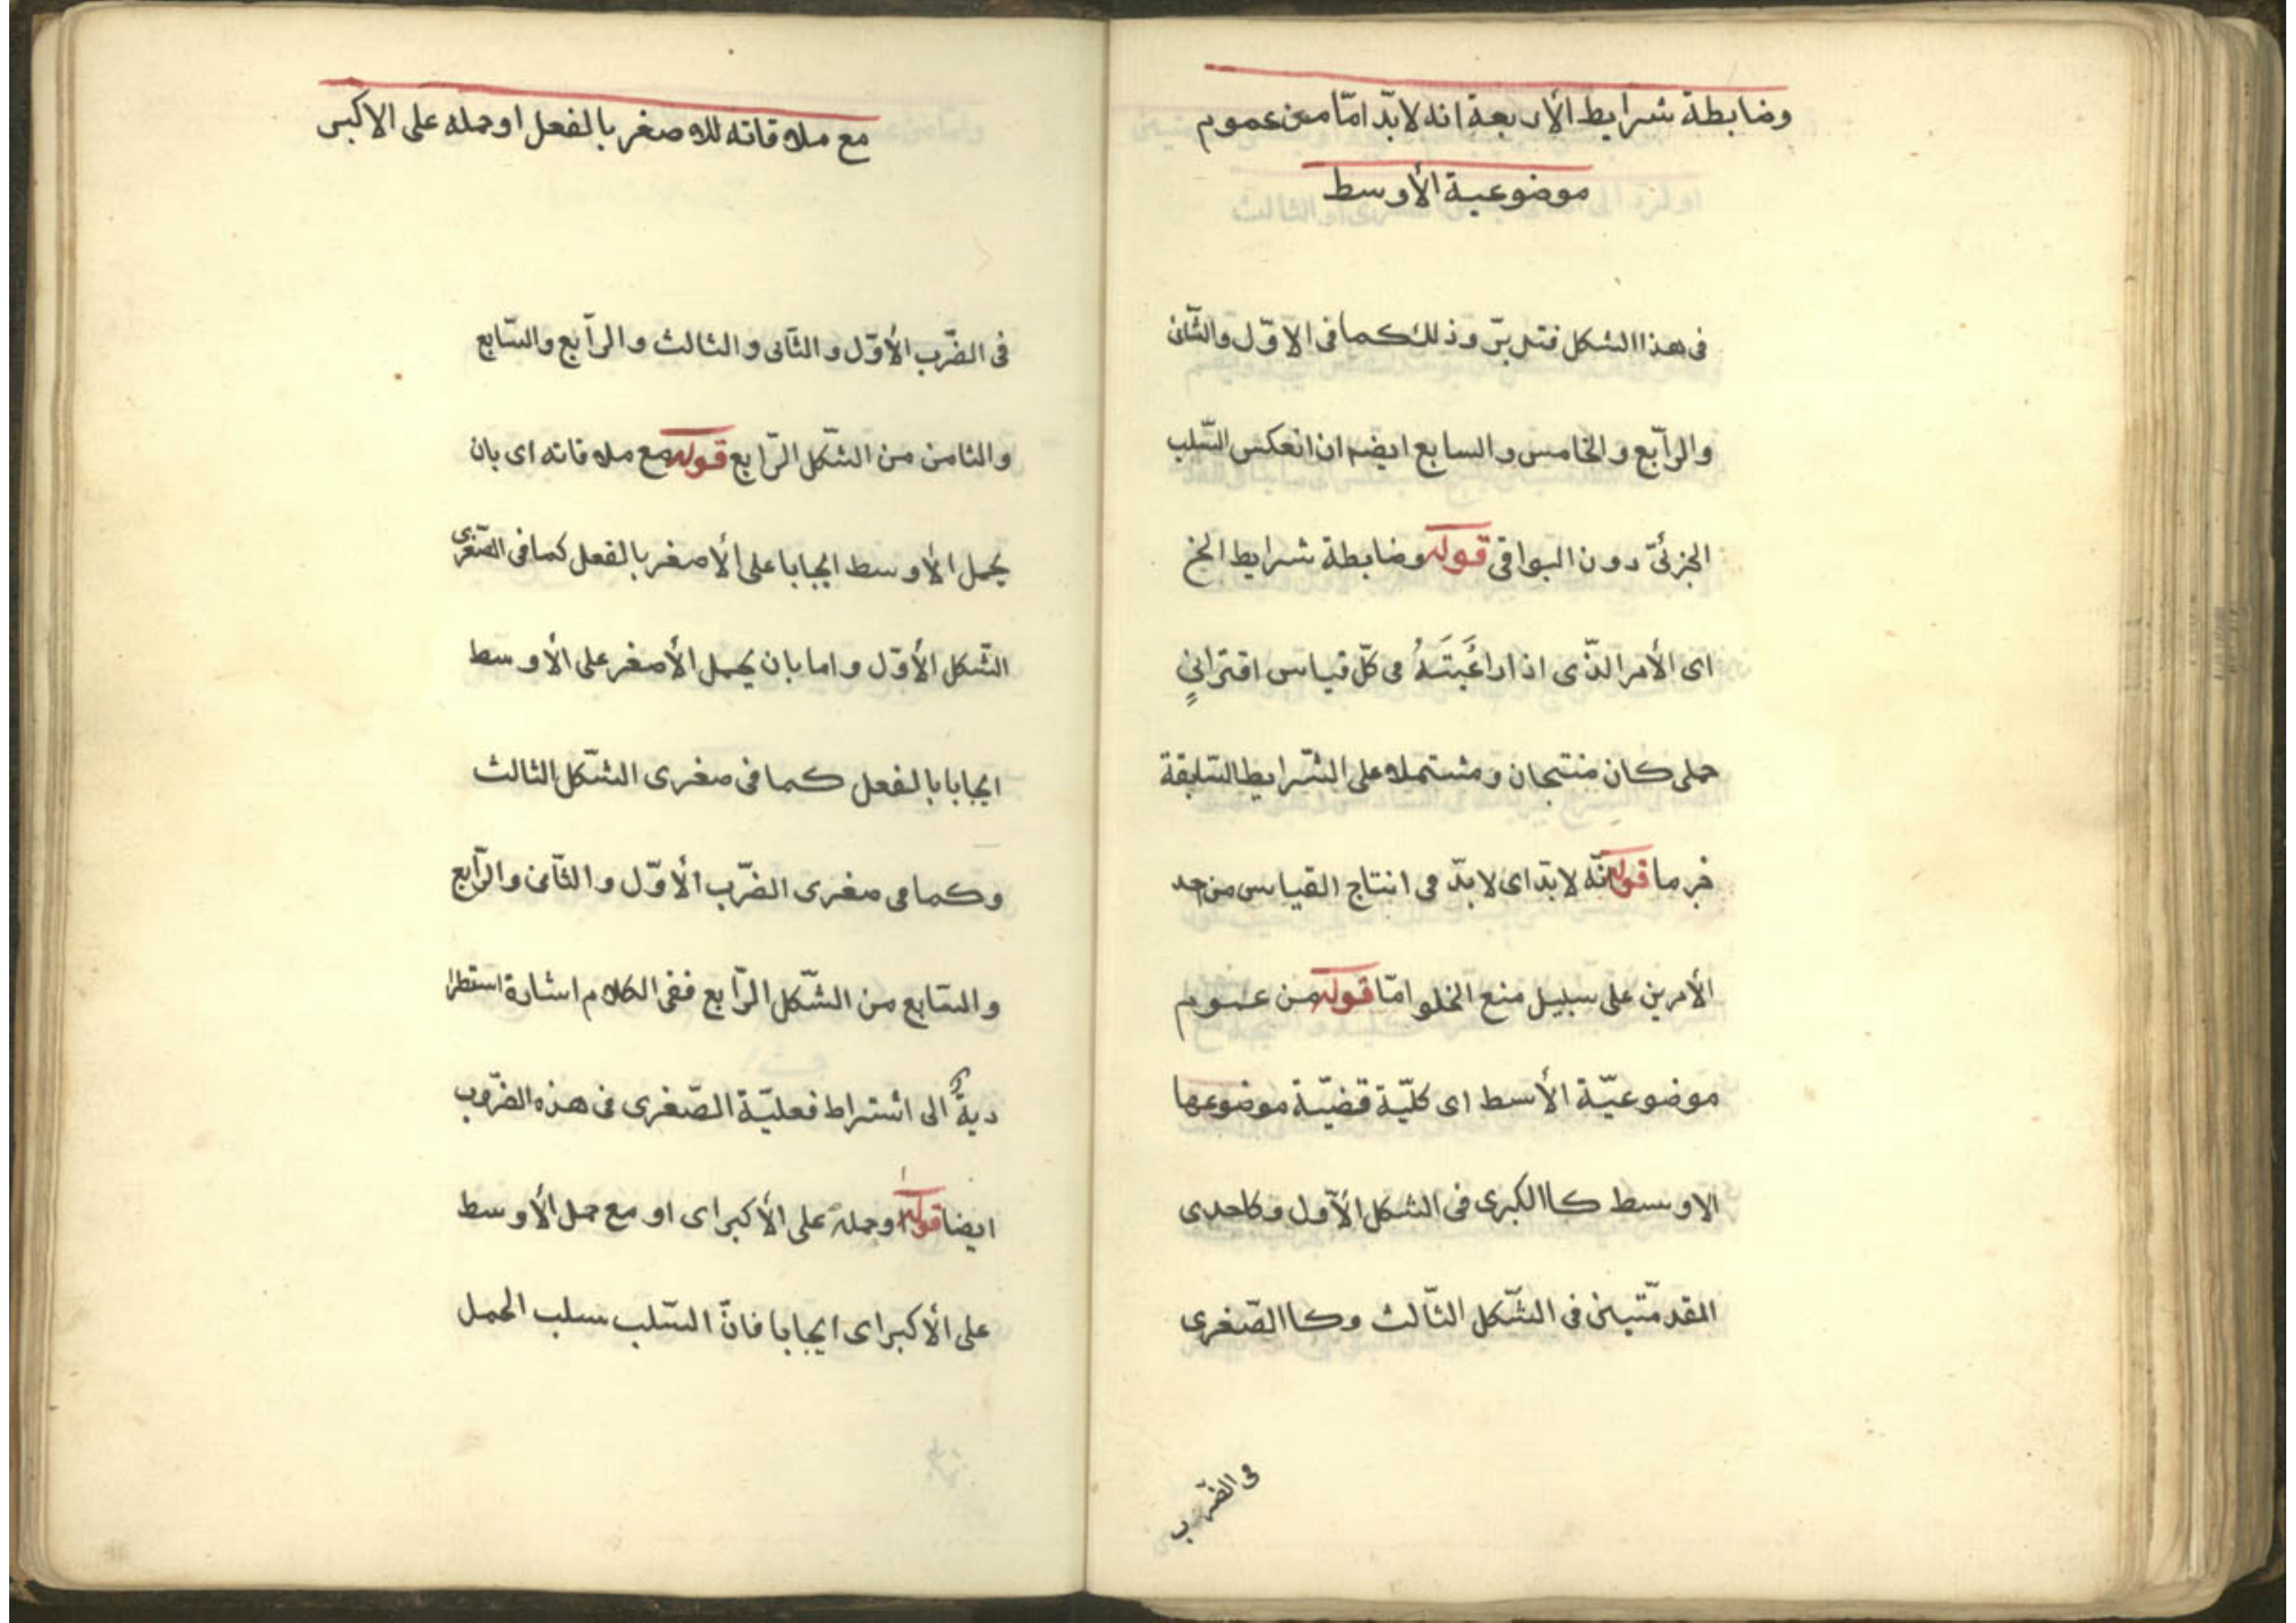 وضابطة شرايط الأربعة انه لابدّ امّا من عموم
موضوعية الأوسط
فى هذا الشكل فتدبرّ وذلك كما فى الاوّل والثّانى
والرّابع والخامس والسابع ايضا ان انعكس السّلب
الجزئىّ دون البواقى قوله وضابطة شرايط الخ
اى الأمر الذّى اذا راعَيتَهُ فى كلّ قياس اقترانىٍ
حملى كان منتجان ومشتملا على الشّرايط السّابقة
جزما قوله انّه لابدّ اى لابدّ فى انتاج القياس من احد
الأمرين على سبيل منع الخلو امّا قوله من عموم
موضوعيّة الأسط اى كليّة قضيّة موضوعها
الاوسط كاالكبرى فى الشكل الأوّل وكاحدى
المقدمّتين فى الشّكل الثّالث وكاالصّغرى
فى الضّرب
مع ملاقاته للاصغر بالفعل او حمله على الاكبر
فى الضّرب الأوّل والثّانى والثالث والرّابع والسّابع
والثامن من الشّكل الرّابع قوله مع ملاقاته اى بان
يحمل الأوسط ايجابا على الأصغر بالفعل كما فى الصّغرى
الشّكل الأوّل واما بان يحمل الأصغر على الأوسط
ايجابا بالفعل كما فى صغرى الشّكل الثالث
وكما فى صغرى الضّرب الأوّل والثّانى والرّابع
والسّابع من الشّكل الرّابع ففى الكلام اشارة استطرا
ديةً الى اشتراط فعليّة الصّغرى فى هذه الضّروب
ايضا قوله او حمله على الأكبر اى او مع حمل الأوسط
على الأكبر اى ايجابا فانّ السّلب سلب الحمل